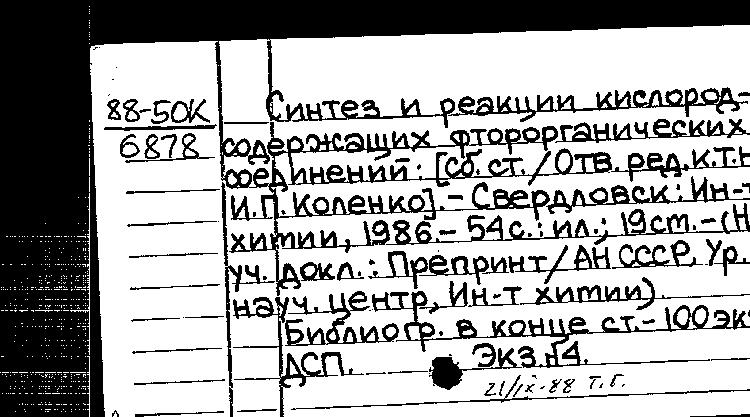 88-50К
6878
Синтез и реакции кислород-
содержащих фторорганических
соединений: [Сб. ст. / Отв. ред. к.т.н
И.П. Коленко]. - Свердловск: Ин-т
химии, 1986. - 54 с.: ил.; 19 ст. - (Н
уч. докл.: Препринт / АН СССР, Ур.
науч. центр, Ин-т химии).
Библиогр. в конце ст. - 100 эк
ДСП. Экз. №4.
21/IX-88 Т.Г.